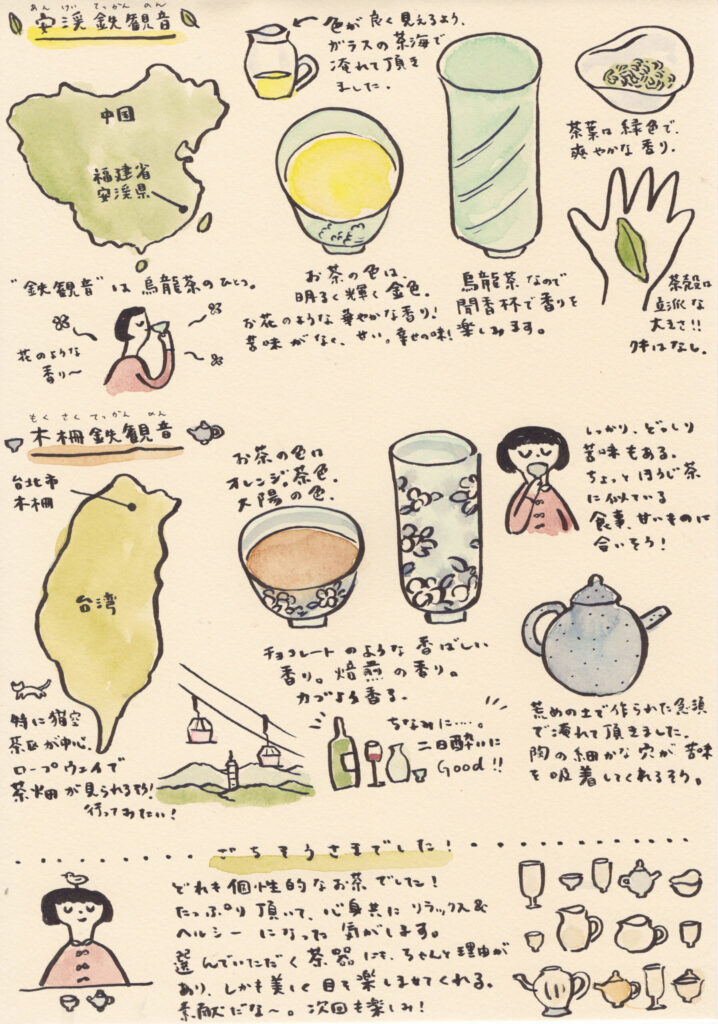 あんけい てっかんのん
安渓鉄観音
色が良く見えるよう、
ガラスの茶海で
淹れて頂き
ました。
中国
福建省
安渓県
茶葉は緑色で、
爽やかな香り。
"鉄観音"は烏龍茶のひとつ。
花のような
香り〜
お茶の色は、
明るく輝く金色。
お花のような華やかな香り!
苦味がなく、甘い。幸せの味!
烏龍茶なので
聞香杯で香りを
楽しみます。
茶殻は
立派な
大きさ!!
はなし。
もくさくてっかんのん
木柵鉄観音
台北市
木柵
台湾
お茶の色は
オレンジ、茶色。
太陽の色。
しっかり、どっしり
苦味もある。
ちょっとほうじ茶
に似ている
食事、甘いものに
合いそう!
チョコレートのような香ばしい
香り。焙煎の香り。
力づよう香る。
特に猫空
茶区が中心。
ロープウェイで
茶畑が見られるそう!
行ってみたい!
ちなみに…。
二日酔いに
Good!!
荒めの土で作られた急須
で淹れて頂きました。
陶の細かな穴が苦味
を吸着してくれるそう。
ごちそうさまでした!
どれも個性的なお茶でした!
たっぷり頂いて、心身共にリラックス&
ヘルシーになった気がします。
選んでいただく茶器にも、ちゃんと理由が
あり、しかも美しく目を楽しませてくれる。
素敵だな〜。次回も楽しみ!